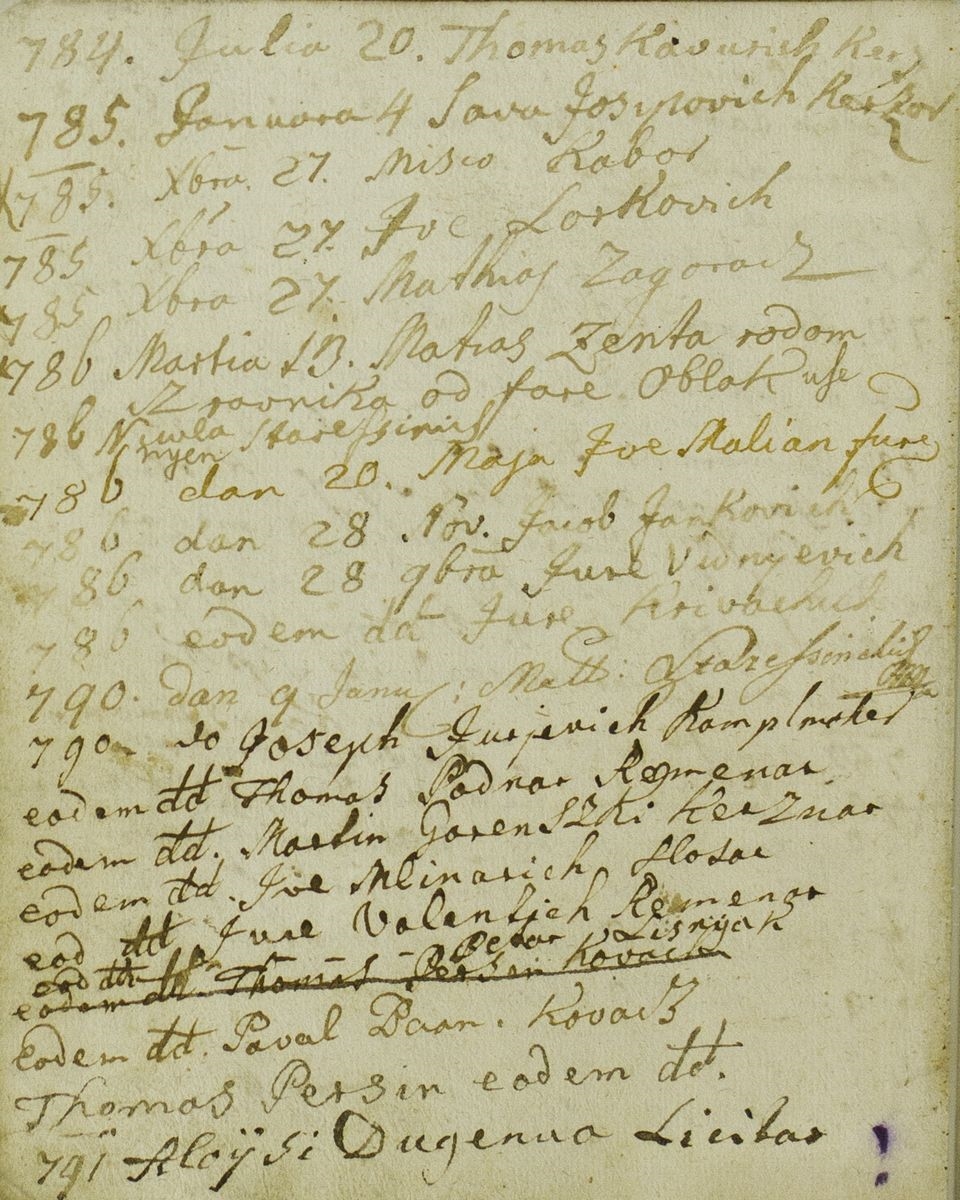 784. Julia 20. Thomas Kavurich Kerz
785. Januara 4 Sava Josypovich Kerznar
785. Xbra. 27. Misco Kabor
785 Xbra 27. Jve Lorkovich
785 Xbra 27. Mathias Zagoracz
786 Martia 13. Matias Zenta rodom
Z ravnika od fare Oblak
786 Staressinich
nyen
786 dan 20. Maja Jve Malian
786 dan 28 Nov. Jacob Jankovich
786 dan 28 9bra Jure Vidnyevich
786 eodem dd Jure Krivachich
790. dan 9 Janu: Matt: Staressinich
790 do Joseph Jurjevich Kamplmaher
eodem dd Thomas Podnar Remenar
eodem dd. Martin Gorenszki Kerznar
eodem dd. Jve Mlinarich Hosar
eod dd Jure Valentich Remenar
eod dd Petar Lisnyak
eodem dd. Thomas Persin Kovach
Eodem dd. Paval Baan. Kovacz
Thomas Persin eodem dd.
791 Aloÿsi Dugenua Licitar